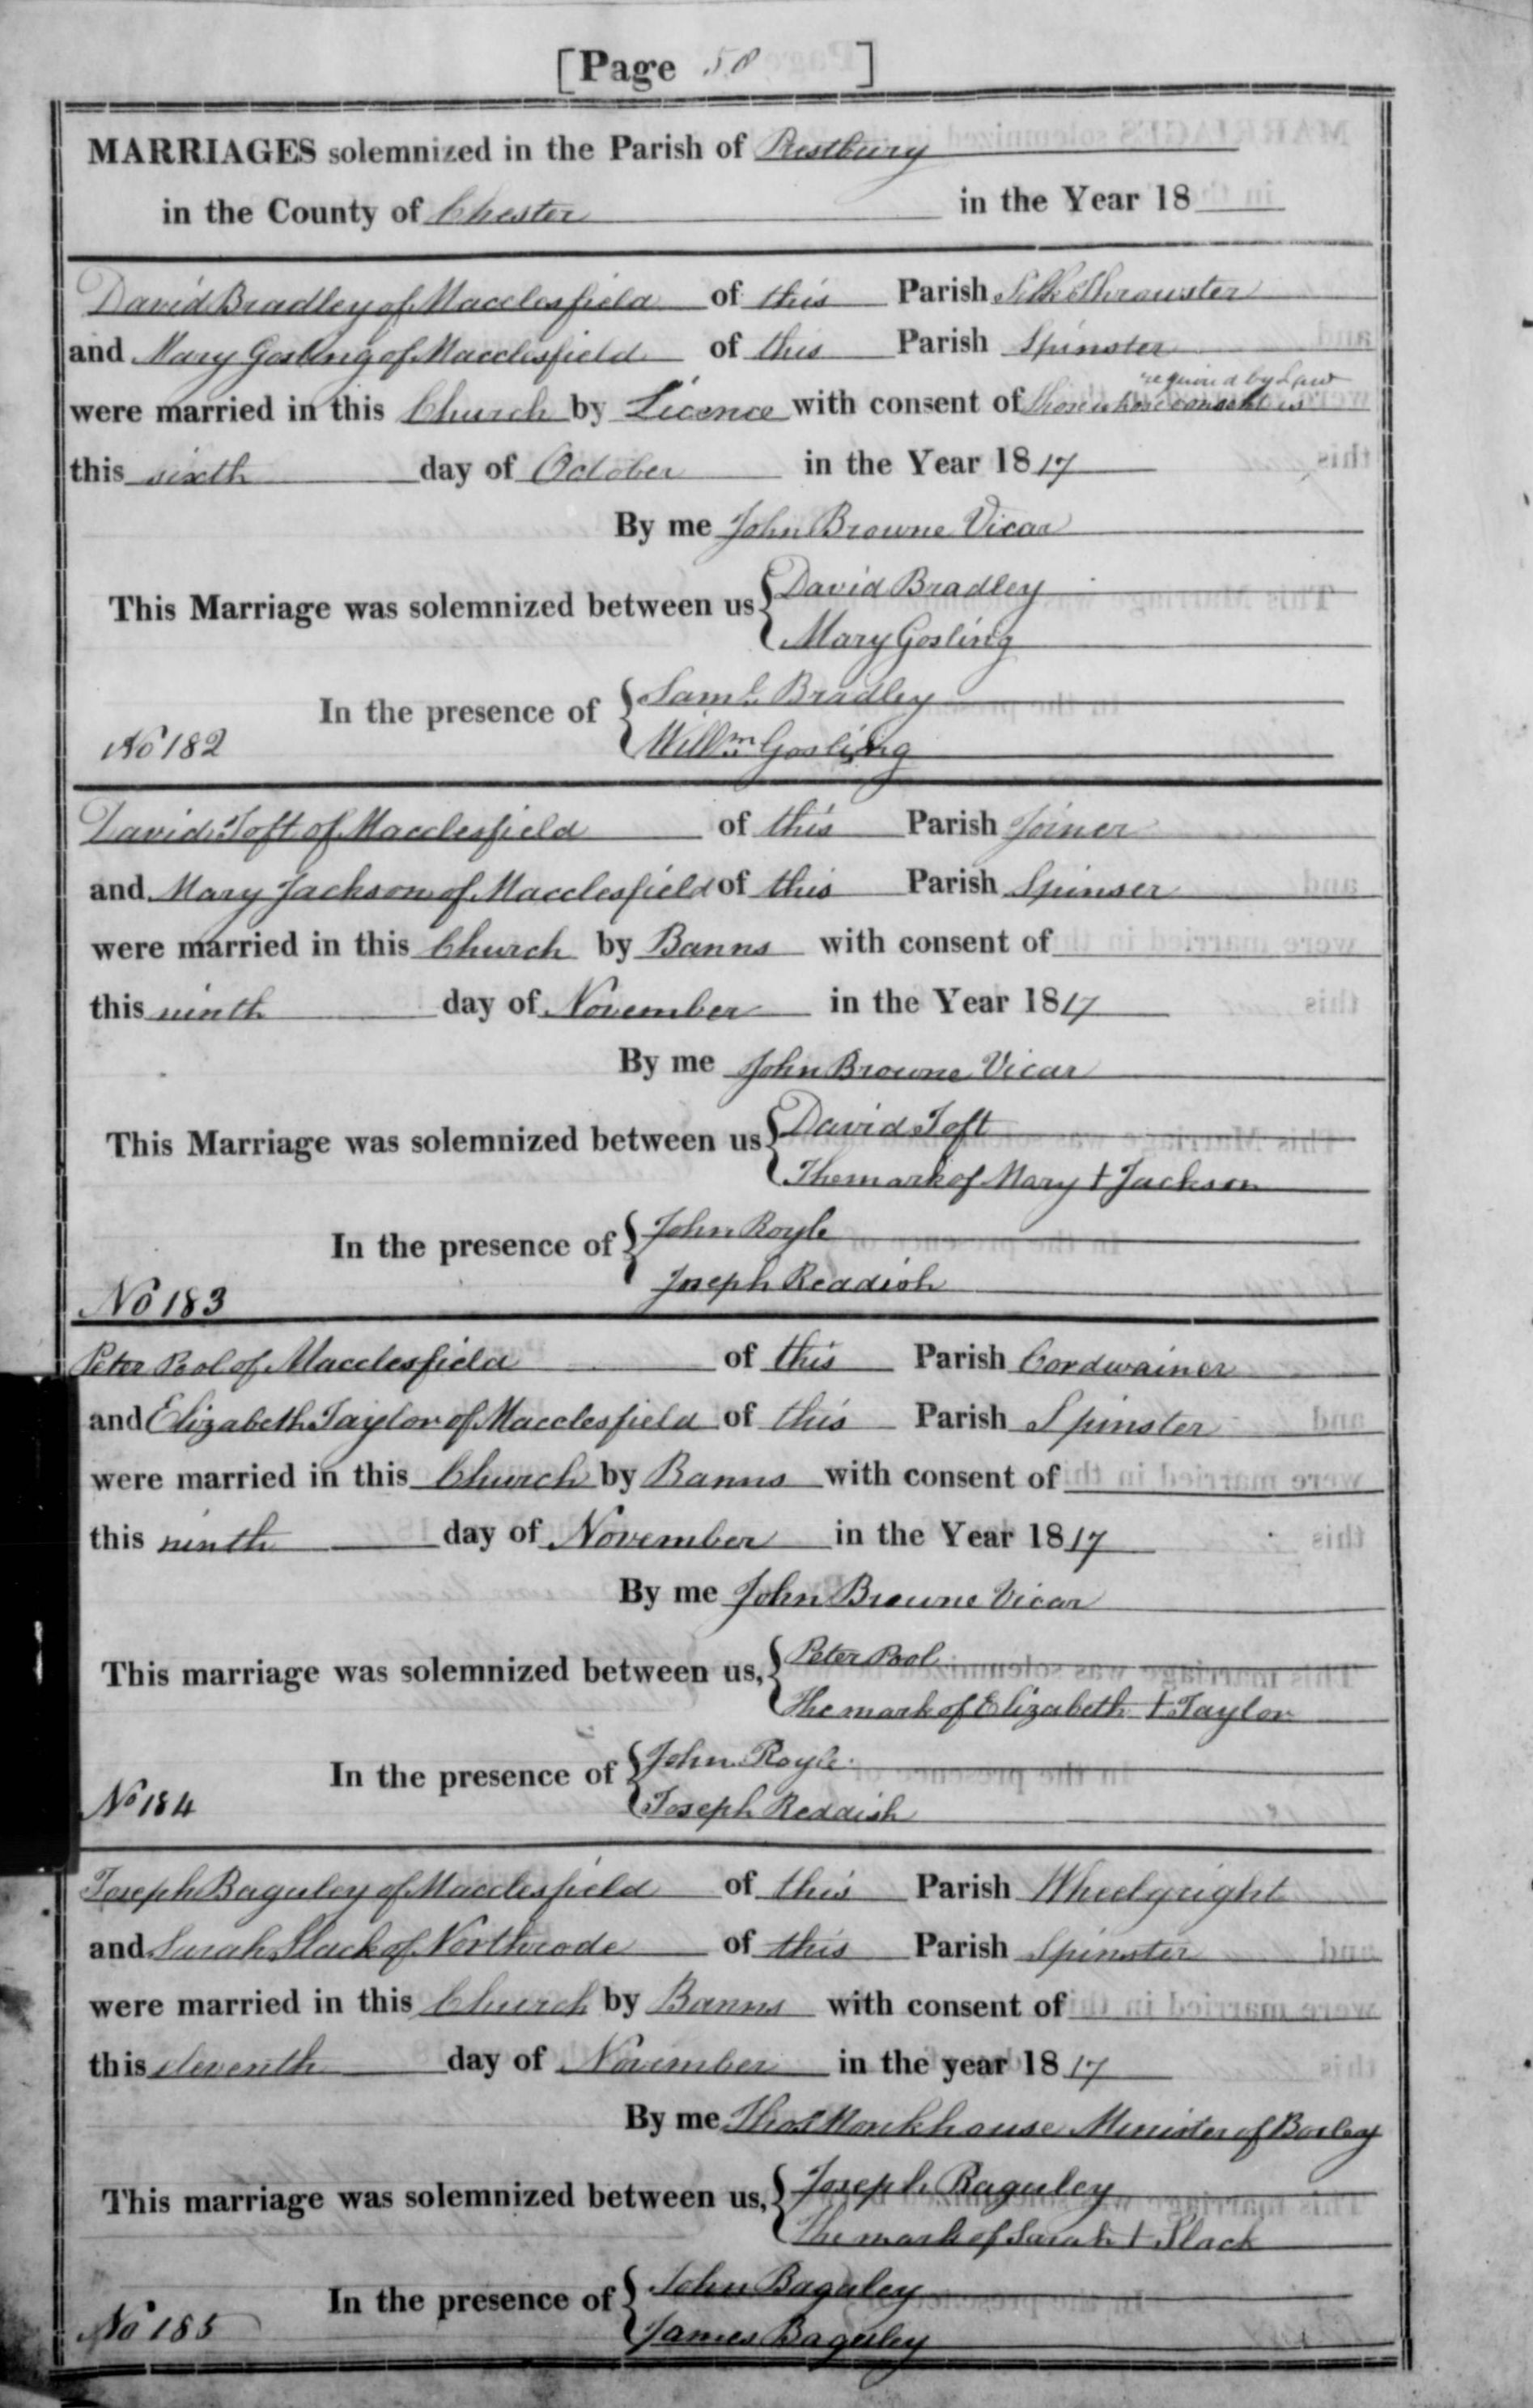 [Page 58]
MARRIAGES solemnized in the Parish of Prestbury
in the County of Chester in the Year 18
David Bradley of Macclesfield of this Parish Silk Throwster
and Mary Gosling of Macclesfield of this Parish Spinster
required by Law
were married in this Church by Licence with consent of those whose consent is
this sixth day of October in the Year 1817
By me John Browne Vicar
This Marriage was solemnized between us { David Bradley
Mary Gosling
In the presence of { Saml. Bradley
No 182 Willm Gosling
David Toft of Macclesfield of this Parish Joiner
and Mary Jackson of Macclesfield of this Parish Spinser
were married in this Church by Banns with consent of
this ninth day of November in the Year 1817
By me John Browne Vicar
This Marriage was solemnized between us { David Toft
The mark of Mary + Jackson
In the presence of { John Royle
Joseph Readish
No 183
Peter Pool of Macclesfield of this Parish Cordwainer
and Elizabeth Taylor of Macclesfield of this Parish Spinster
were married in this Church by Banns with consent of
this ninth day of November in the Year 1817
By me John Browne Vicar
This marriage was solemnized between us, { Peter Pool
The mark of Elizabeth + Taylor
In the presence of { John Royle
No 184 Joseph Reddish
Joseph Baguley of Macclesfield of this Parish Wheelgright
and Sarah Slack of Northrode of this Parish Spinster
were married in this Church by Banns with consent of
this eleventh day of November in the year 1817
By me Thos Monkhouse Minister of Bosley
This marriage was solemnized between us, { Joseph Baguley
The mark of Sarah + Slack
In the presence of { John Baguley
No 185 James Baguley